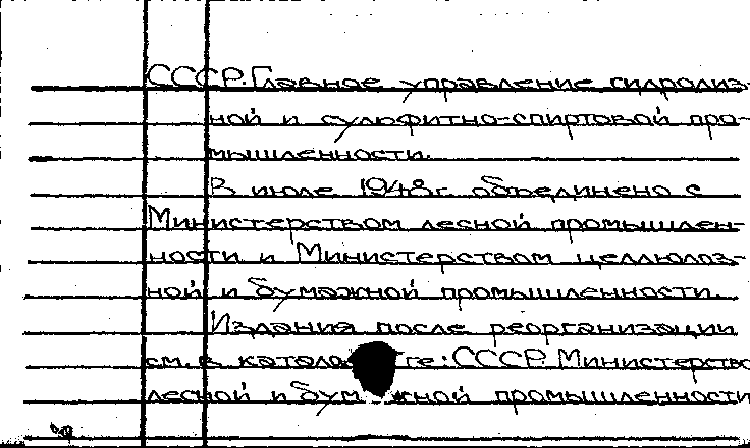 СССР. Главное управление гидролиз-
ной и сульфитно-спиртовой про-
мышленности.
В июле 1948г. объединено с
Министерством лесной промышлен-
ности и Министерством целлюлоз-
ной и бумажной промышленности.
Издания после реорганизации
см. в каталоге: СССР. Министерство
лесной и бумажной промышленности